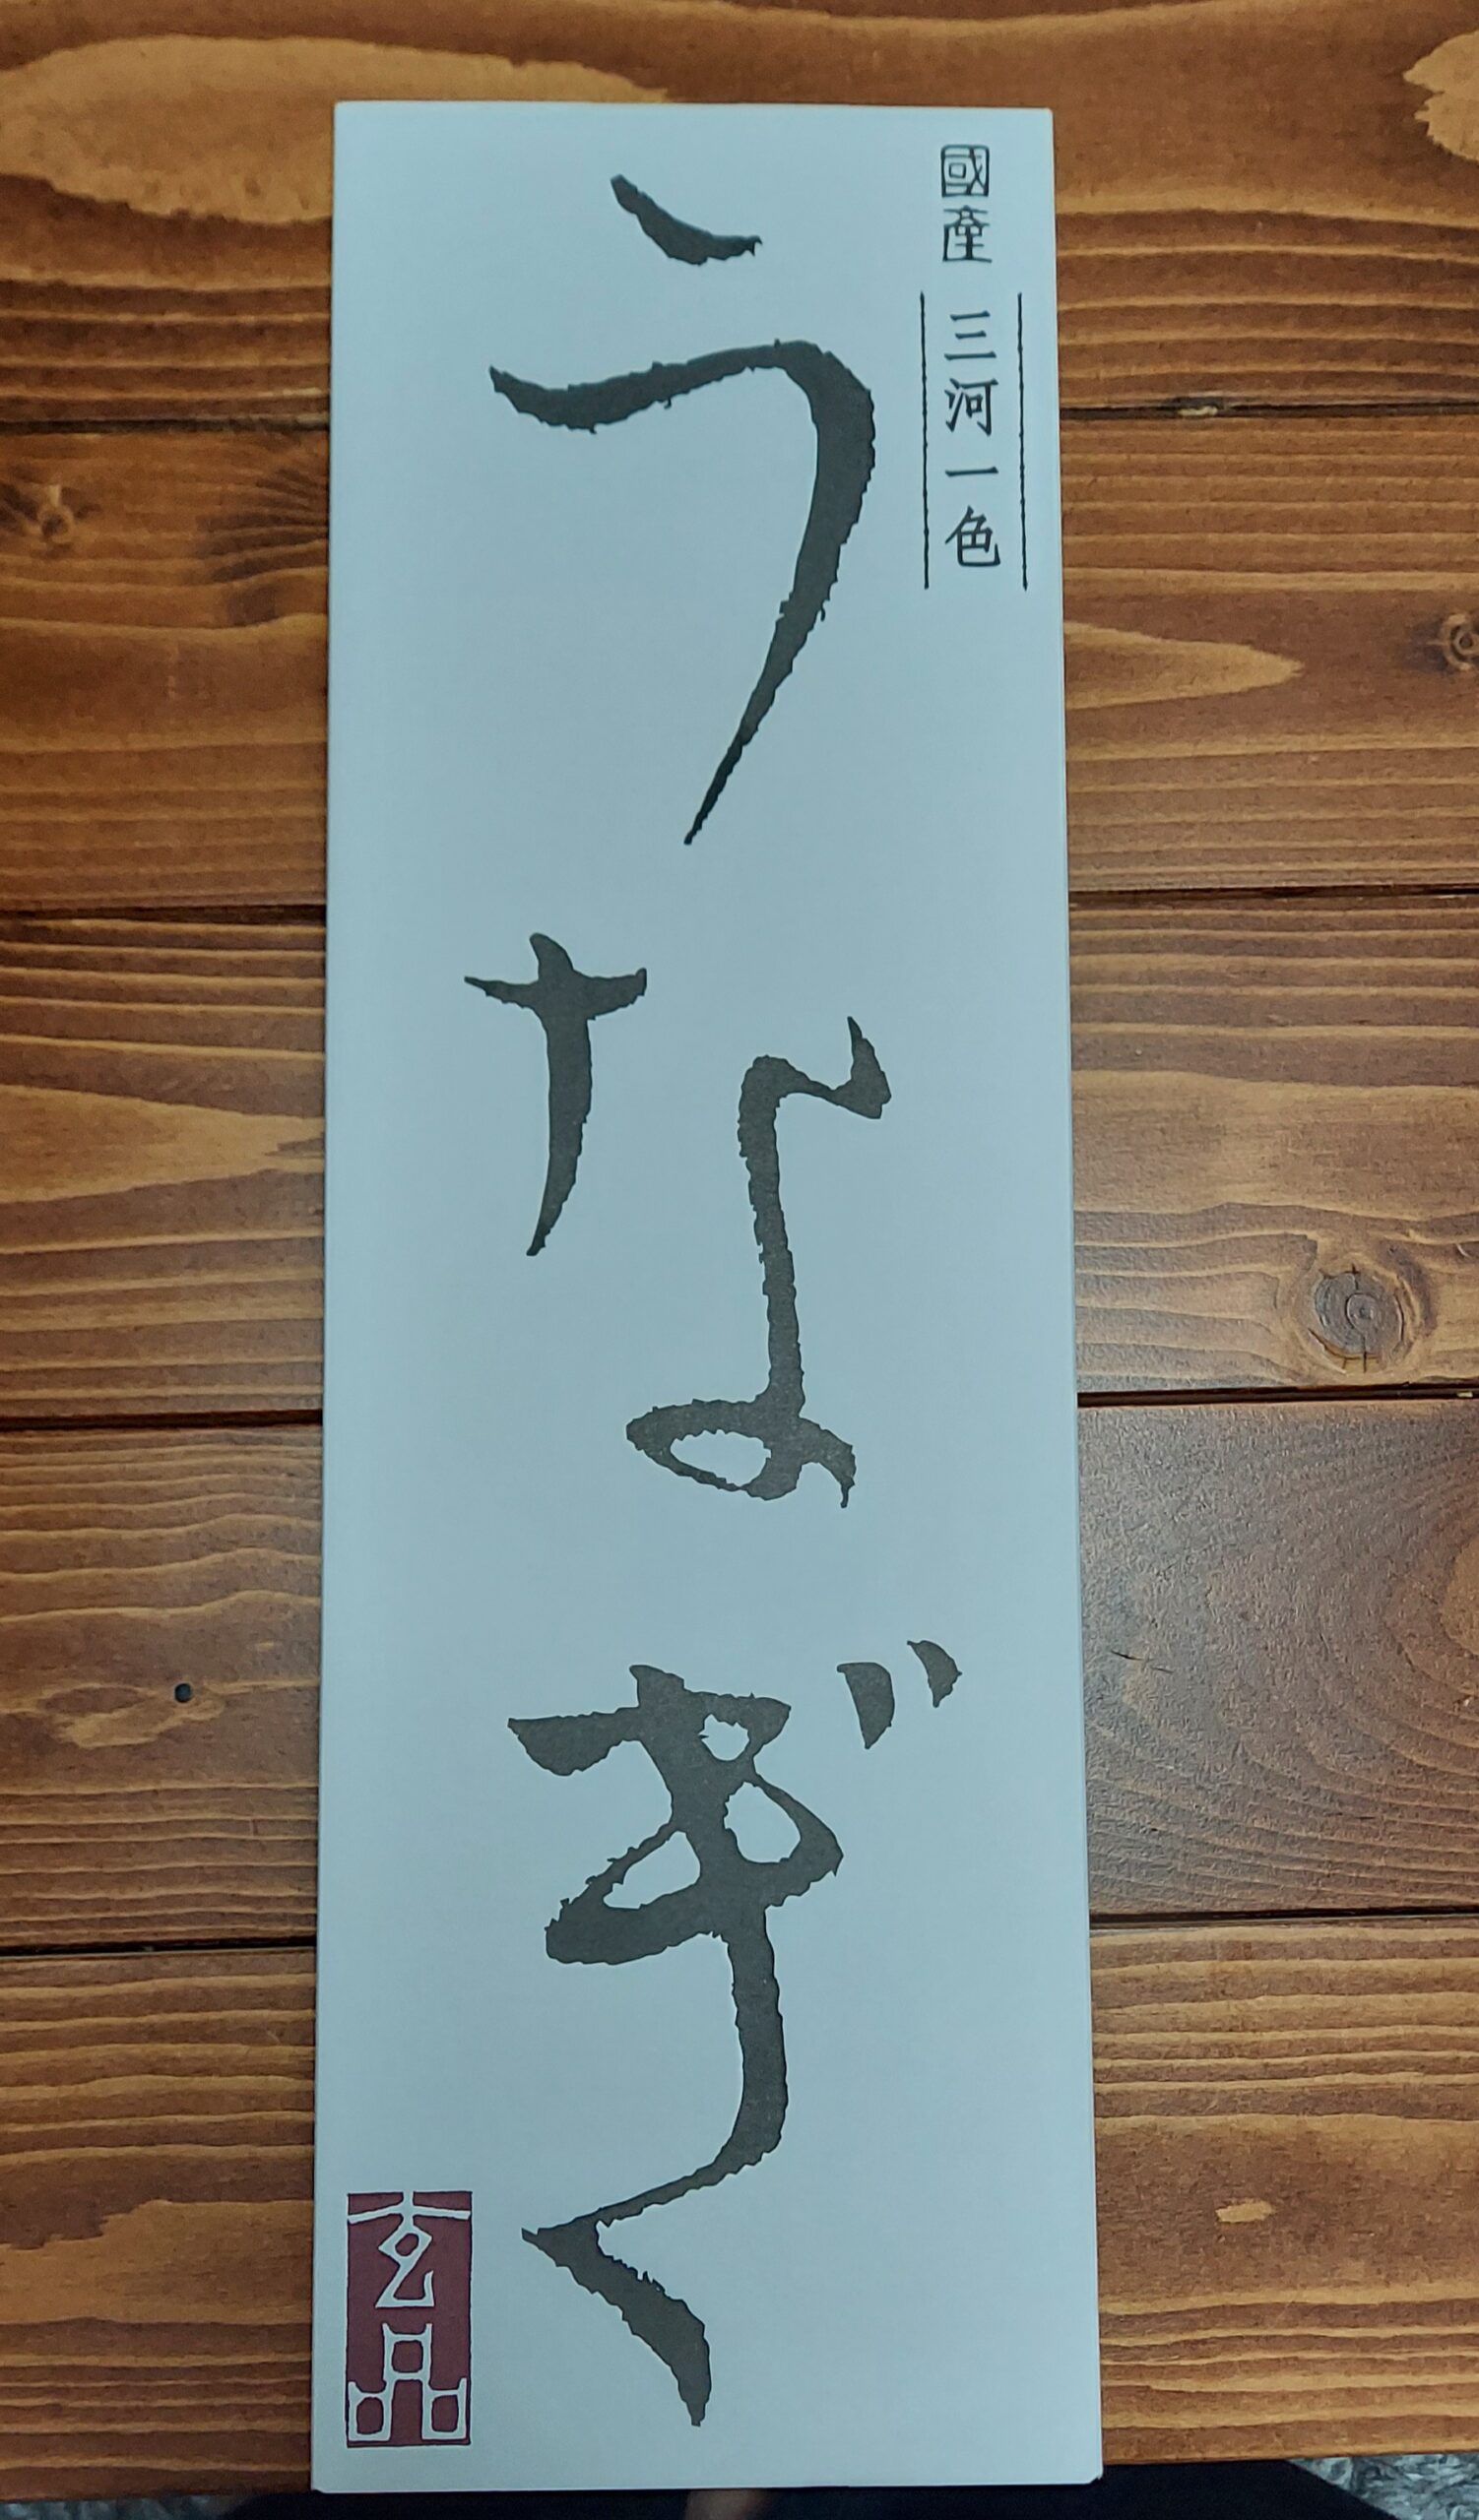 國産 三河一色
うなぎ
玄品